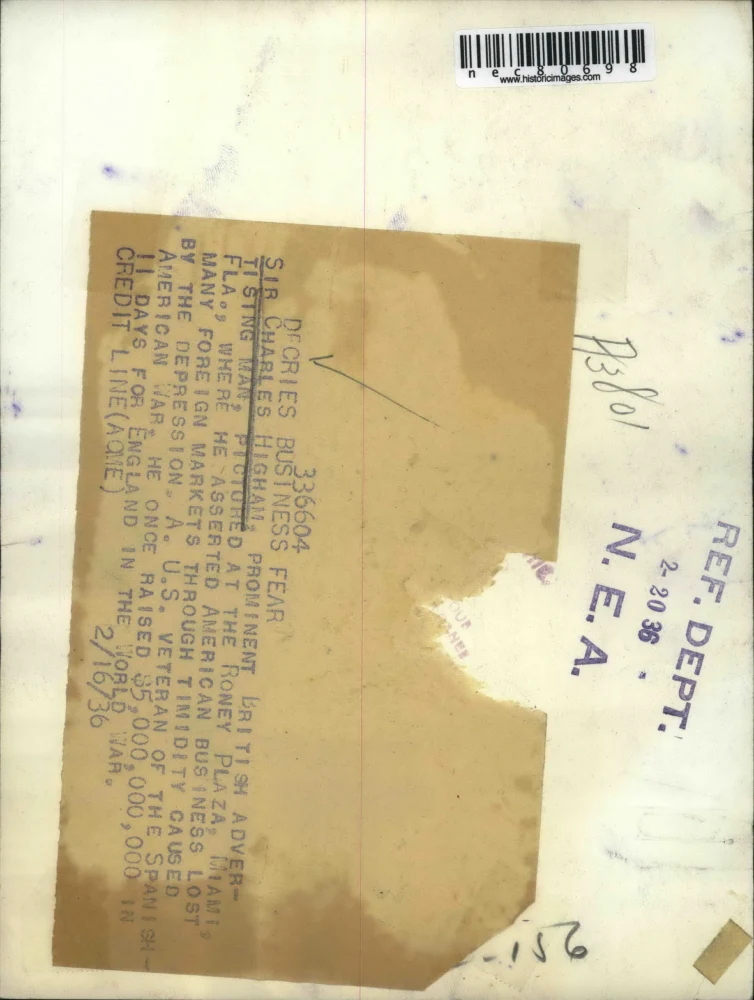 nec80698
www.historicimages.com
A3801
REF. DEPT.
2-20 36
N. E. A.
336604
DECRIES BUSINESS FEAR
SIR CHARLES HIGHAM, PROMINENT BRITISH ADVER-
TISING MAN, PICTURED AT THE RONEY PLAZA, MIAMI,
FLA., WHERE HE ASSERTED AMERICAN BUSINESS LOST
MANY FOREIGN MARKETS THROUGH TIMIDITY CAUSED
BY THE DEPRESSION. A. U.S. VETERAN OF THE SPANISH-
AMERICAN WAR, HE ONCE RAISED $5,000,000,000 IN
11 DAYS FOR ENGLAND IN THE WORLD WAR.
CREDIT LINE(ACME) 2/16/36
-156